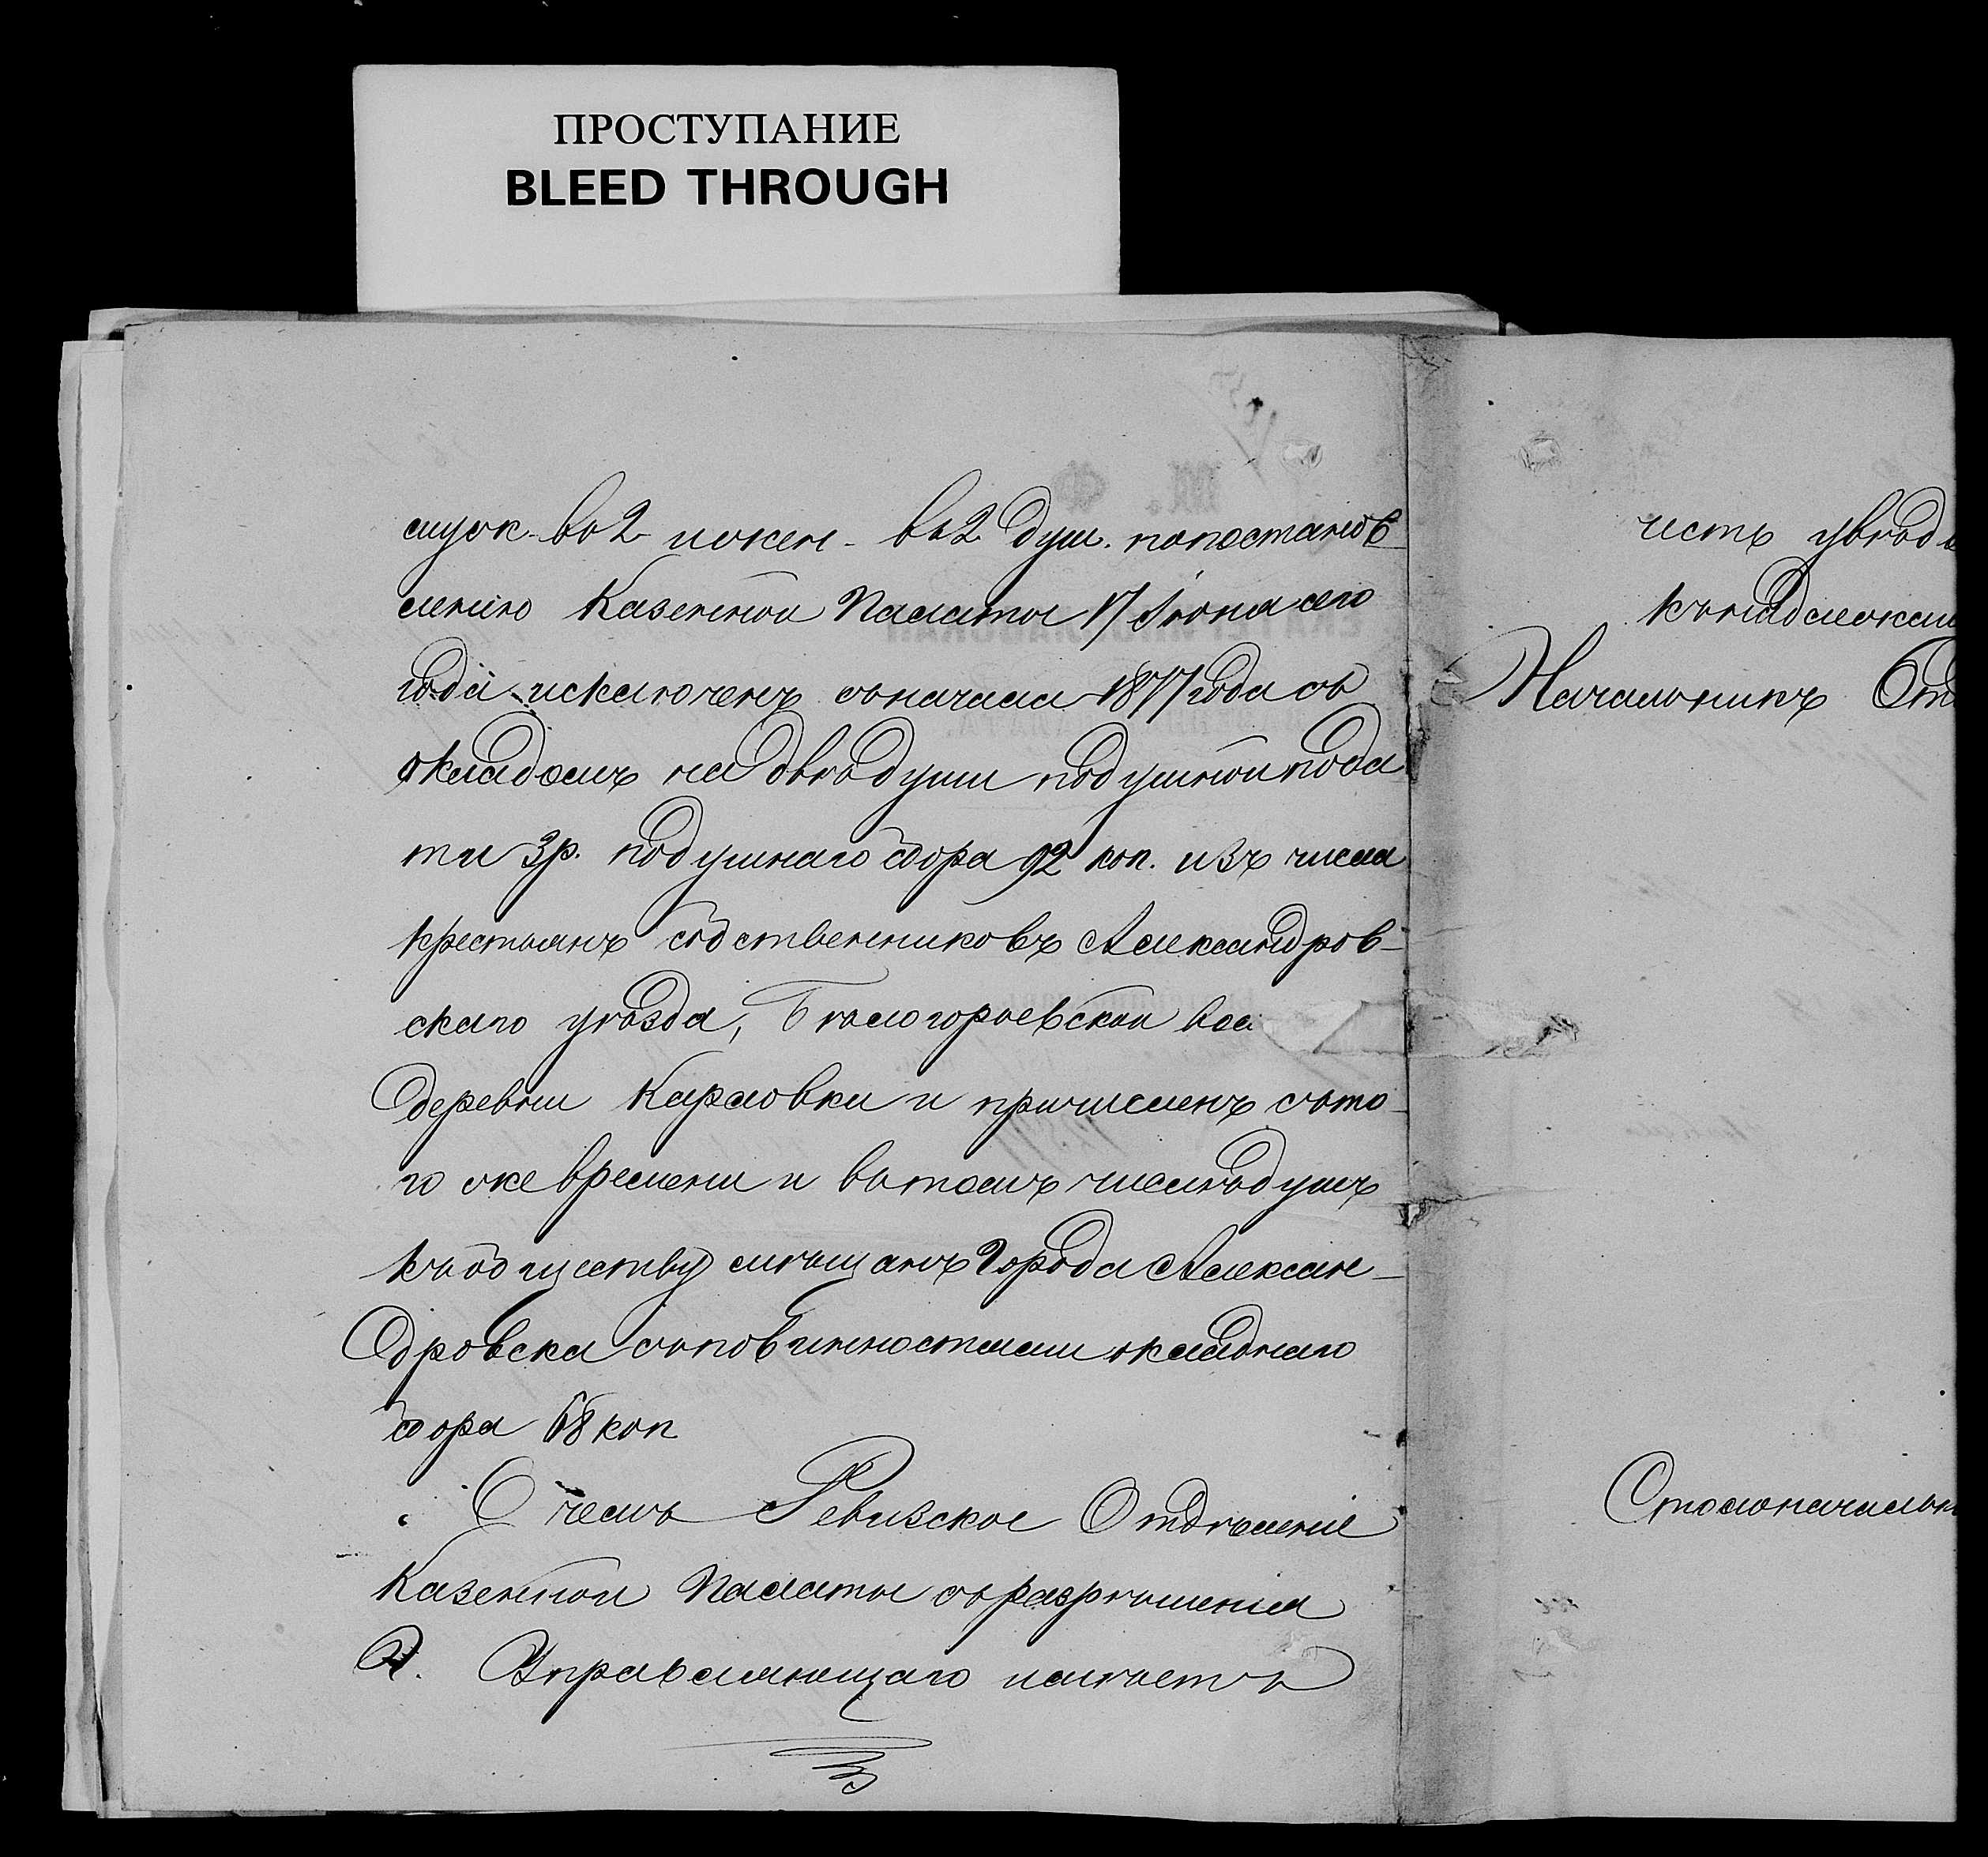 ПРОСТУПАНИЕ
BLEED THROUGH
муж. въ 2 и жен. въ 2 душ. по постанов
ленію Казенной Палаты 17 Іюня сего
года исключенъ съ начала 1877 года съ
окладомъ на двѣ души подушной пода
ти 3 р. подушнаго сбора 92 коп. изъ числа
крестьянъ собственниковъ Александров-
скаго уѣзда, Бѣлогорьевской вол
деревни Карловки и причисленъ съ то-
го же времени и въ томъ числѣ душъ
къ обществу мѣщанъ Города Алексан-
дровска съ повинностями окладнаго
сбора 68 коп
О чемъ Ревизское Отдѣленіе
Казенной Палаты съ разрѣшенія
Г. Управляющаго имѣетъ
честь увѣд
къ надлежащ
Начальникъ Отд
Столоначальн